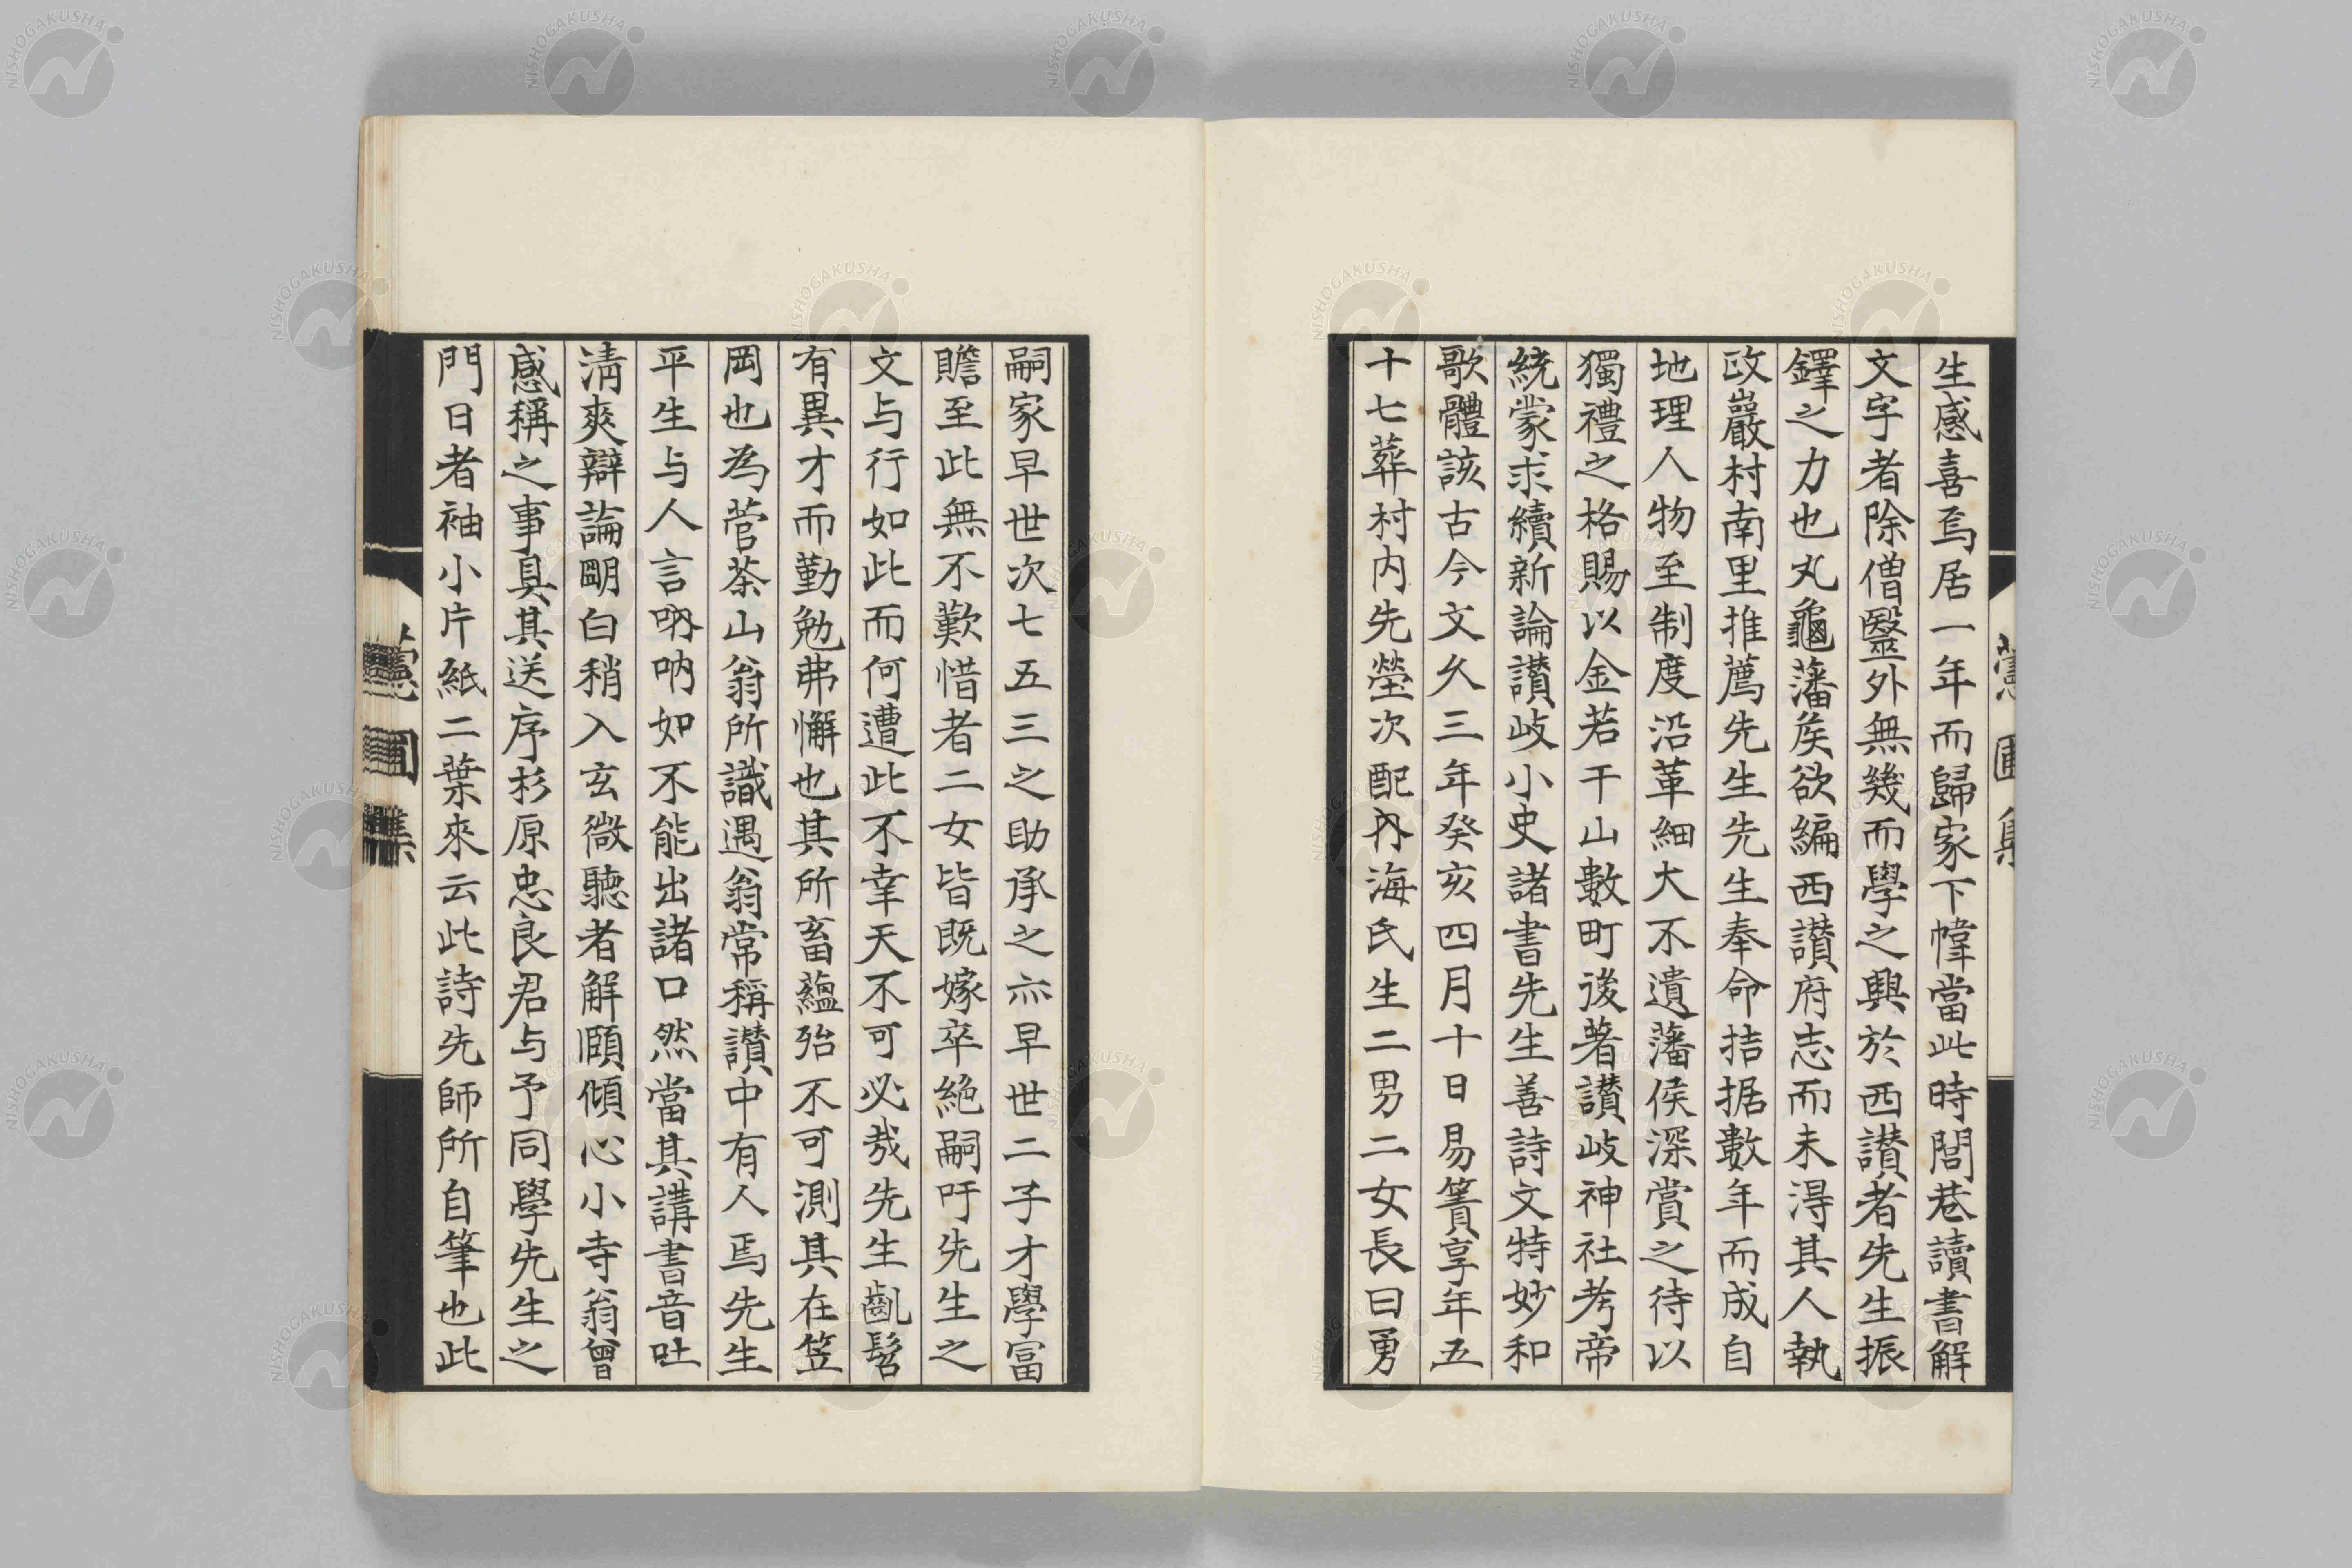 生感喜焉居一年而歸家下幃當此時閭巷讀書解
文字者除僧毉外無幾而學之興於西讃者先生振
鐸之力也丸龜藩矦欲編西讃府志而未得其人執
政巖村南里推薦先生先生奉命拮据數年而成自
地理人物至制度沿革細大不遺藩侯深賞之待以
獨禮之格賜以金若干山數町後著讃岐神社考帝
統蒙求續新論讃岐小史諸書先生善詩文特妙和
歌體該古今文久三年癸亥四月十日易簀享年五
十七葬村内先塋次配內海氏生二男二女長曰勇
嗣家早世次七五三之助承之亦早世二子才學富
贍至此無不歎惜者二女皆既嫁卒絶嗣吁先生之
文与行如此而何遭此不幸天不可必哉先生齠髫
有異才而勤勉弗懈也其所畜蘊殆不可測其在笠
岡也為菅茶山翁所識遇翁常稱讃中有人焉先生
平生与人言吶吶如不能出諸口然當其講書音吐
淸爽辯論朙白稍入玄微聽者解頤傾心小寺翁曾
感稱之事具其送序杉原忠良君与予同學先生之
門日者袖小片紙二葉來云此詩先師所自筆也此
NISHOGAKUSHA